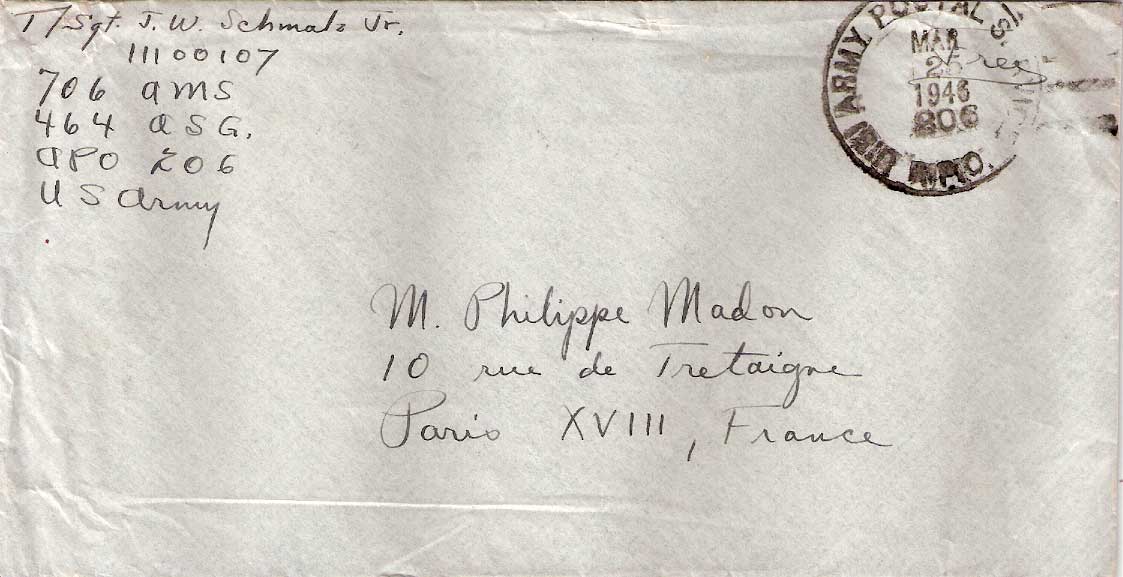 T/Sgt. J. W. Schmalz Jr.
11100107
706 AMS
464 ASG.
APO 206
US Army
ARMY POSTAL
MAR
1946
206
Free
M. Philippe Madon
10 rue de Tretaigne
Paris XVIII, France